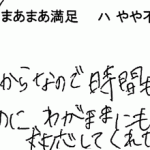 まあまあ満足 ハ やや不
からなので時間も
のに、わがままにも
対応してくれて